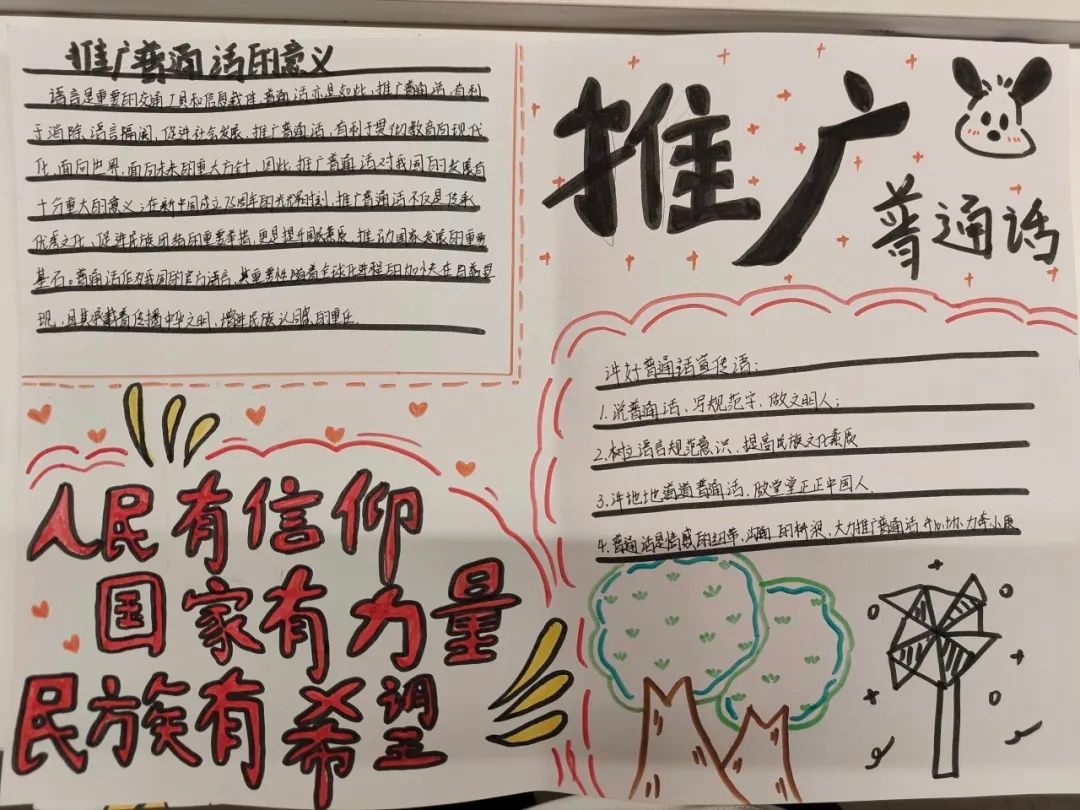 推广普通话的意义
语言是重要的交通工具和信息载体,普通话亦是如此,推广普通话,有利
于消除语言隔阂,促进社会发展,推广普通话,有利于贯彻教育向现代
化,面向世界,面向未来的重大方针,因此,推广普通话对我国的发展有
十分重大的意义;在新中国成立75周年的光辉时刻,推广普通话不仅是传承
优秀文化,促进民族团结的重要举措,更是提升国民素质,推动国家发展的重要
基石。普通话作为我国的官方语言,其重要性随着全球化进程的加快在日益显
现,因其承载着传播中华文明,增进民族认同感的重任.
推广
普通话
讲好普通话宣传语:
1.说普通话、写规范字、做文明人;
2.树立语言规范意识,提高民族文化素质
3.讲地地道道普通话,做堂堂正正中国人.
4.普通话是情感的纽带,沟通的桥梁,大力推广普通话
人民有信仰
国家有力量
民族有希望